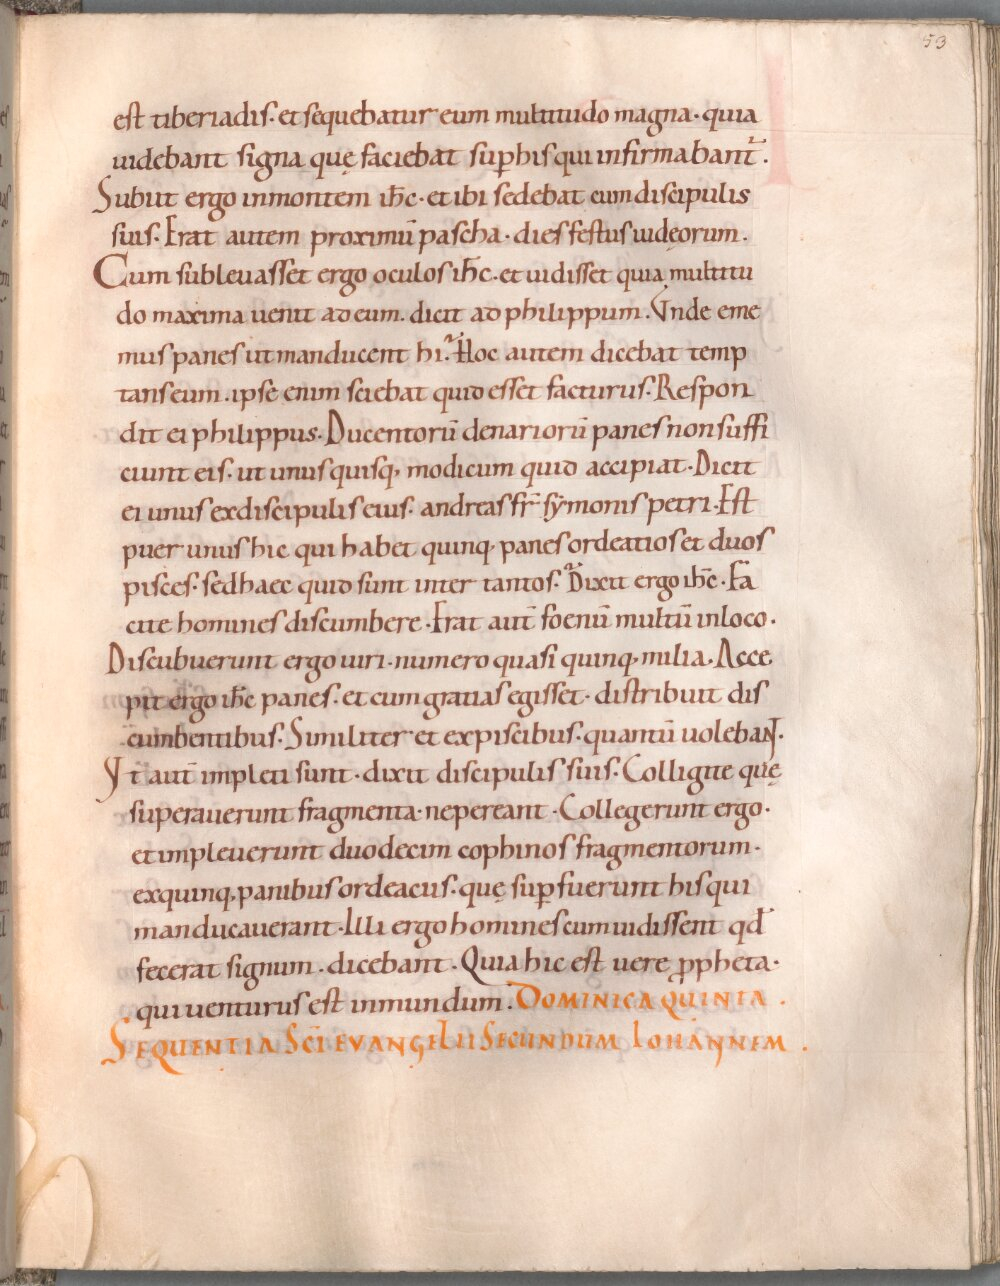 53
est tiberiadis· et sequebatur eum multitudo magna· quia
uidebant signa quę faciebat sup̄ his qui infirmabant̄·
Subiit ergo in montem ih̄c· et ibi sedebat cum discipulis
suis· Erat autem proximū pascha· dies festus iudęorum·
Cum subleuasset ergo oculos ih̄c· et uidisset quia multitu
do maxima uenit ad eum· dicit ad philippum· Vnde eme
mus panes ut manducent hi? Hoc autem dicebat temp
tans eum· ipse enim sciebat quid esset facturus· Respon
dit ei philippus· Ducentorū denariorū panes non suffi
ciunt eis· ut unus quisq; modicum quid accipiat· Dicit
ei unus ex discipulis eius· andreas fr̄ symonis petri· Est
puer unus hic qui habet quinq; panes ordeatios et duos
pisces· sed haec quid sunt inter tantos? Dixit ergo ih̄c· Fa
cite homines discumbere· Erat aut̄ foenū multū in loco·
Discubuerunt ergo uiri· numero quasi quinq; milia· Acce
pit ergo ih̄c panes· et cum gratias egisset· distribuit dis
cumbentibus· Similiter et ex piscibus· quantū uolebant·
Vt aut̄ impleti sunt· dixit discipulis suis· Colligite quę
superauerunt fragmenta· ne pereant· Collegerunt ergo·
et impleuerunt duodecim cophinos fragmentorum·
ex quinq; panibus ordeacus· quę sup̄fuerunt his qui
manducauerant· Illi ergo homines cum uidissent qd̄
fecerat signum· dicebant· Quia hic est uere ꝓpheta·
qui uenturus est in mundum· DOMINICA QUINTA·
SEQUENTIA SCĪ EVANGELII SECUNDUM IOHANNEM·